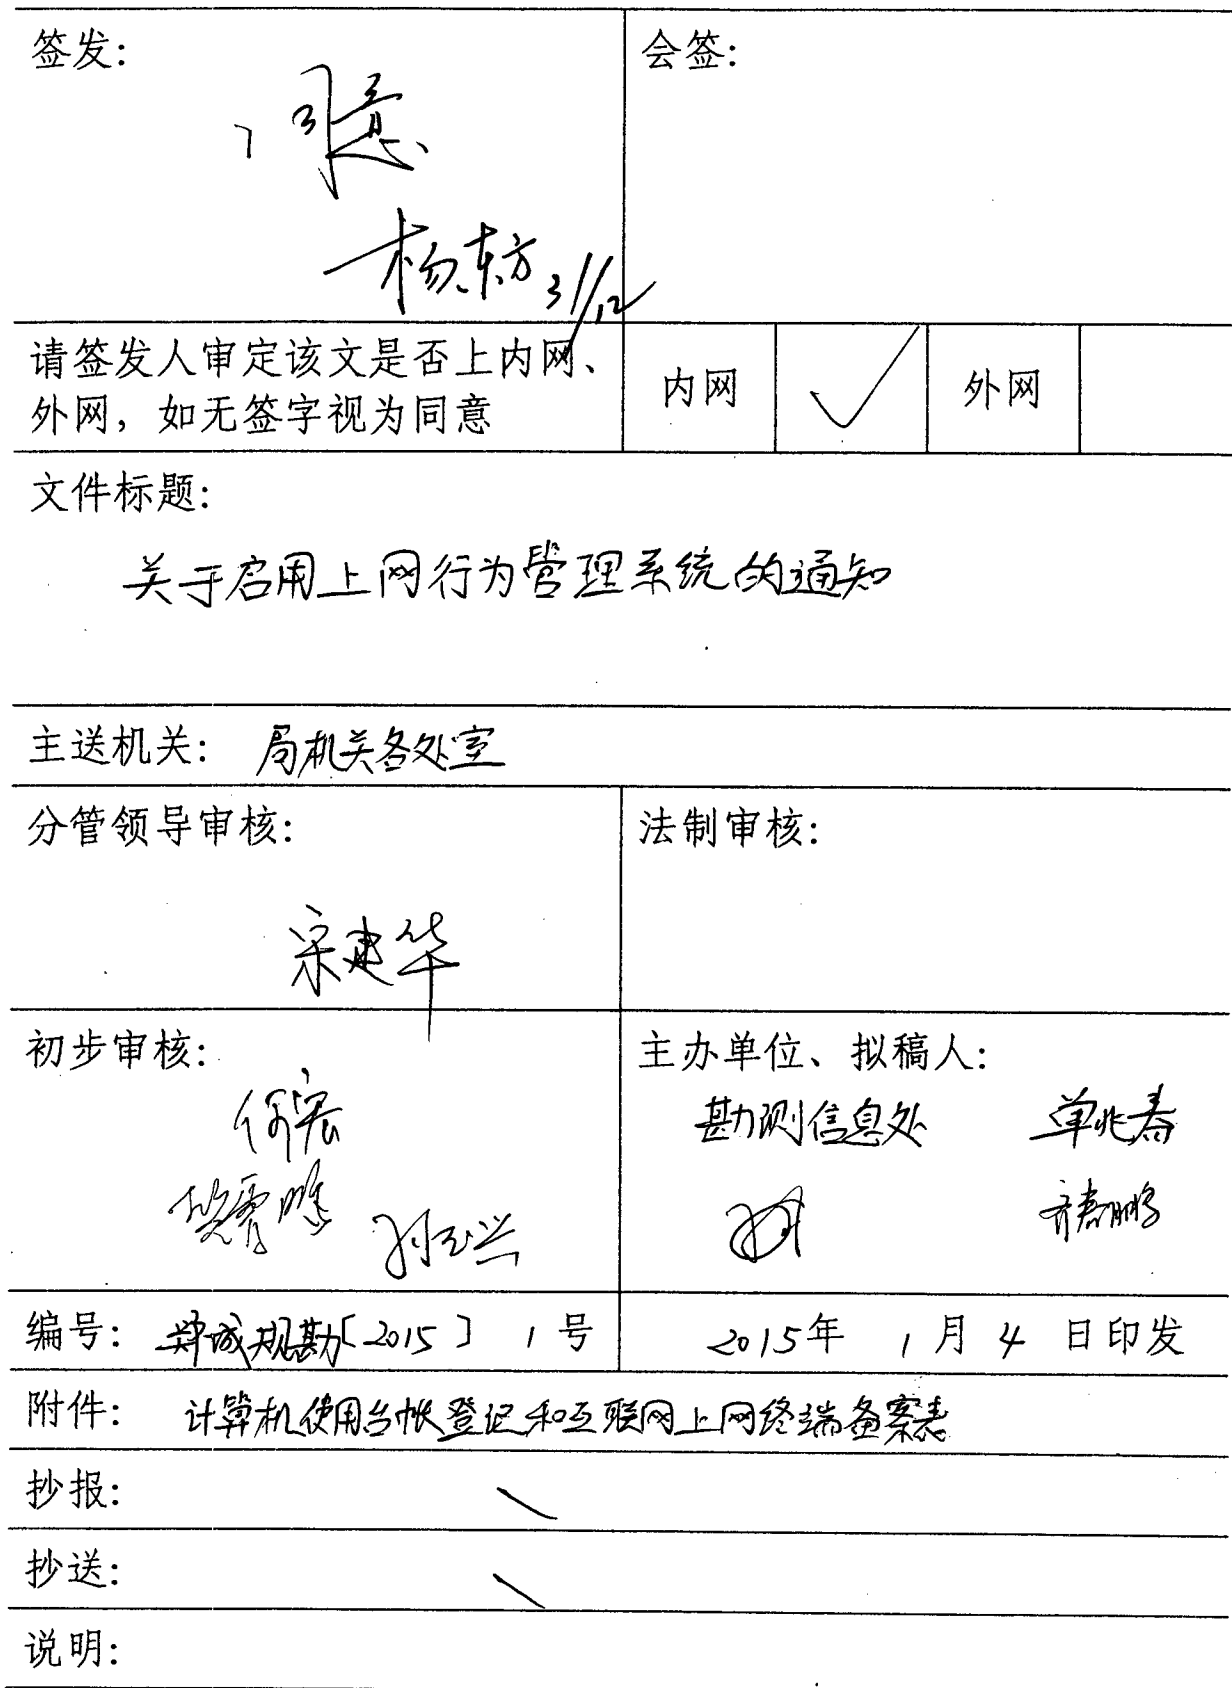 签发:
会签:
同意
杨东方 31/12
请签发人审定该文是否上内网、
外网，如无签字视为同意
内网 ✓ 外网
文件标题:
关于启用上网行为管理系统的通知
主送机关: 局机关各处室
分管领导审核:
法制审核:
宋建华
初步审核:
主办单位、拟稿人:
何宏
勘测信息处 单兆春
孙玉兴
齐春鹏
编号: 郑城规勘〔2015〕 1 号
2015年 1 月 4 日印发
附件: 计算机使用台帐登记和互联网上网终端备案表
抄报:
抄送:
说明: